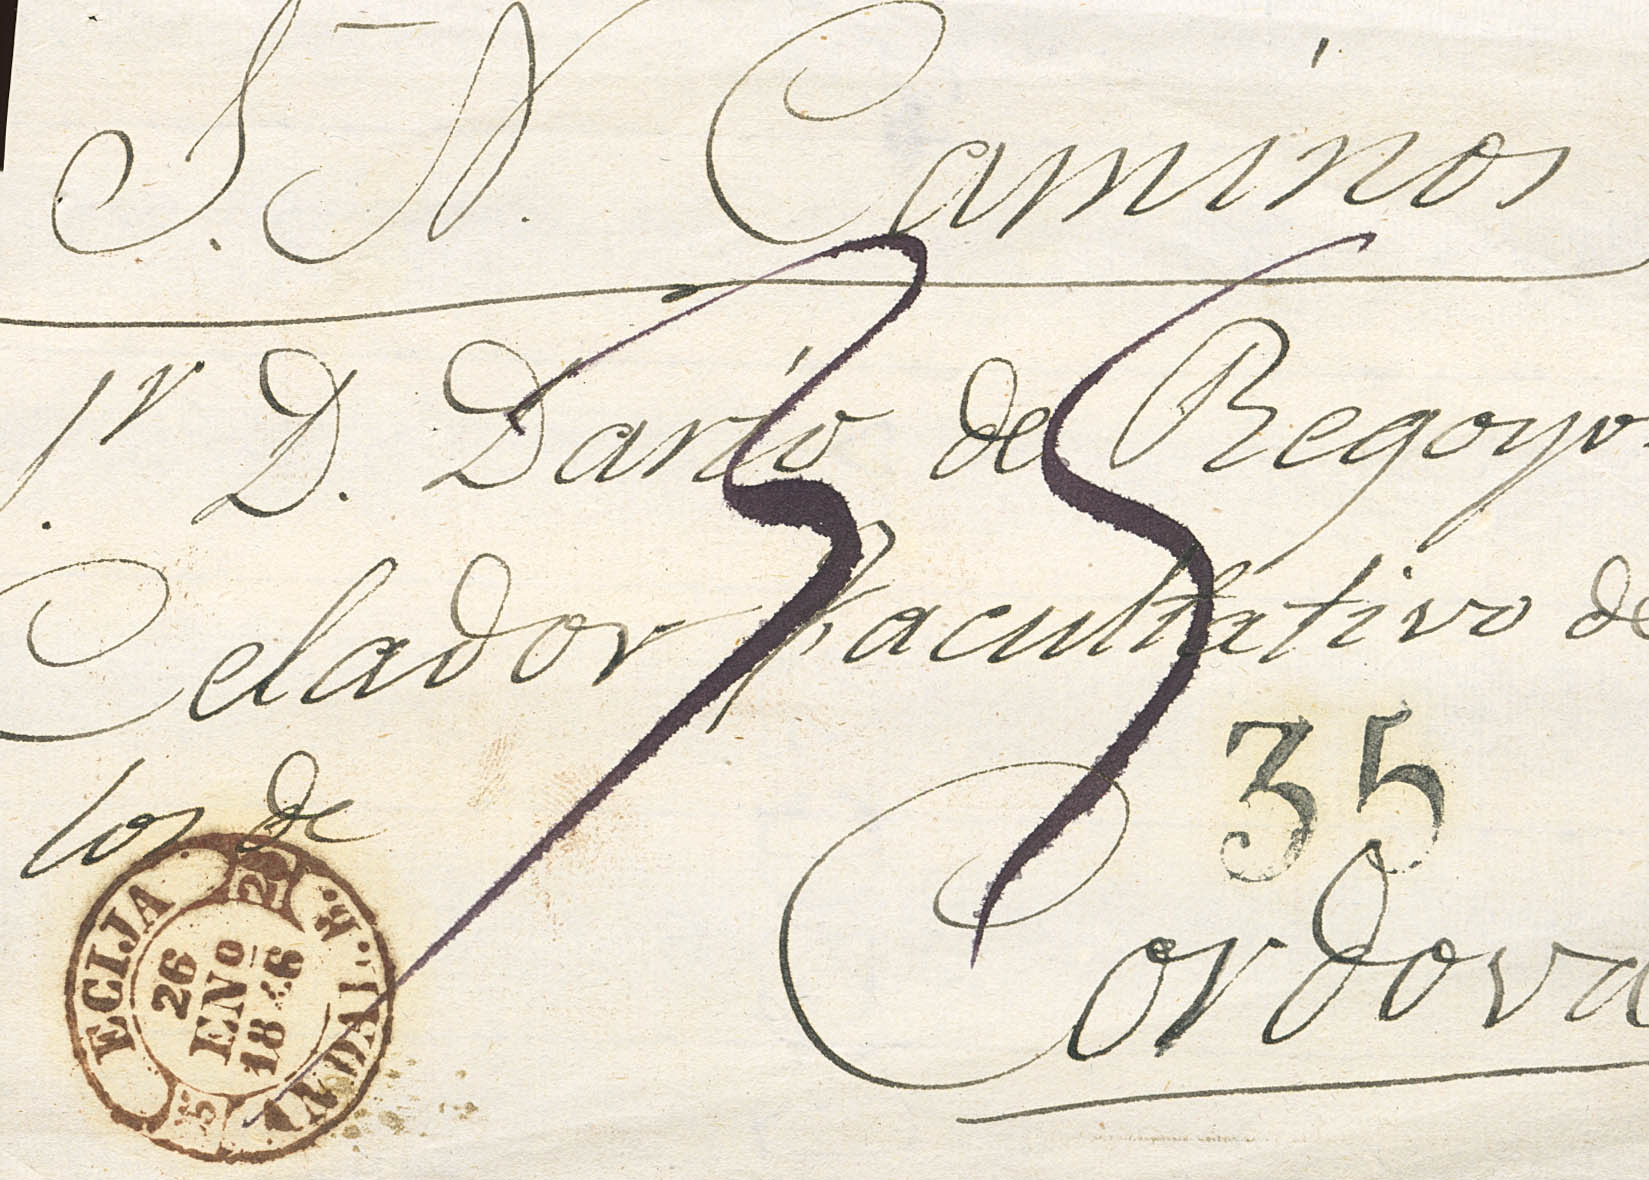 S. N. Caminos
Sr. D. Darío de Regoyos
Celador facultativo de
los de
35
Cordova
ECIJA
26
ENO
1846
ANDAL. B.